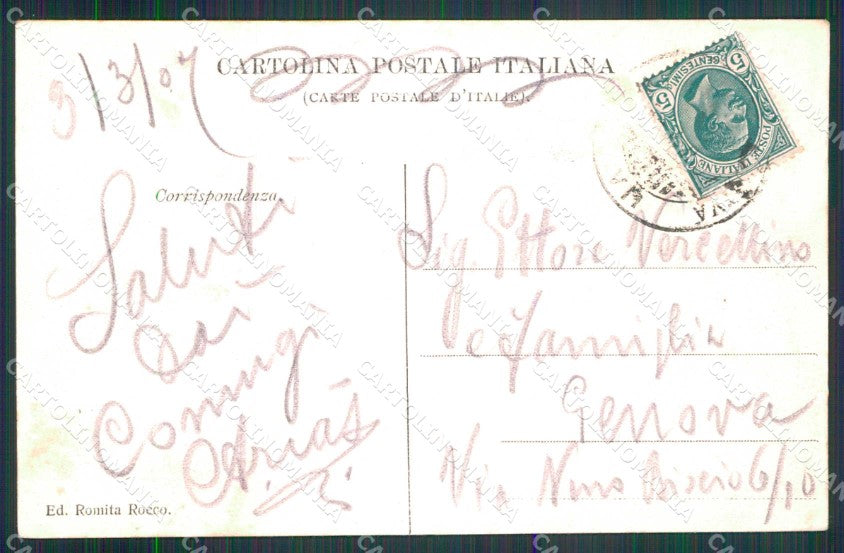 3/3/07
CARTOLINA POSTALE ITALIANA
(CARTE POSTALE D'ITALIE).
CENTESIMI
5 5
POSTE ITALIANE
Corrispondenza.
Saluti
dai
Coniugi
Arias
Sig. Ettore Vercellino
e famiglia
Genova
Via Nino Bixio 6/10
Ed. Romita Rocco.
CARTOLINOMANIA